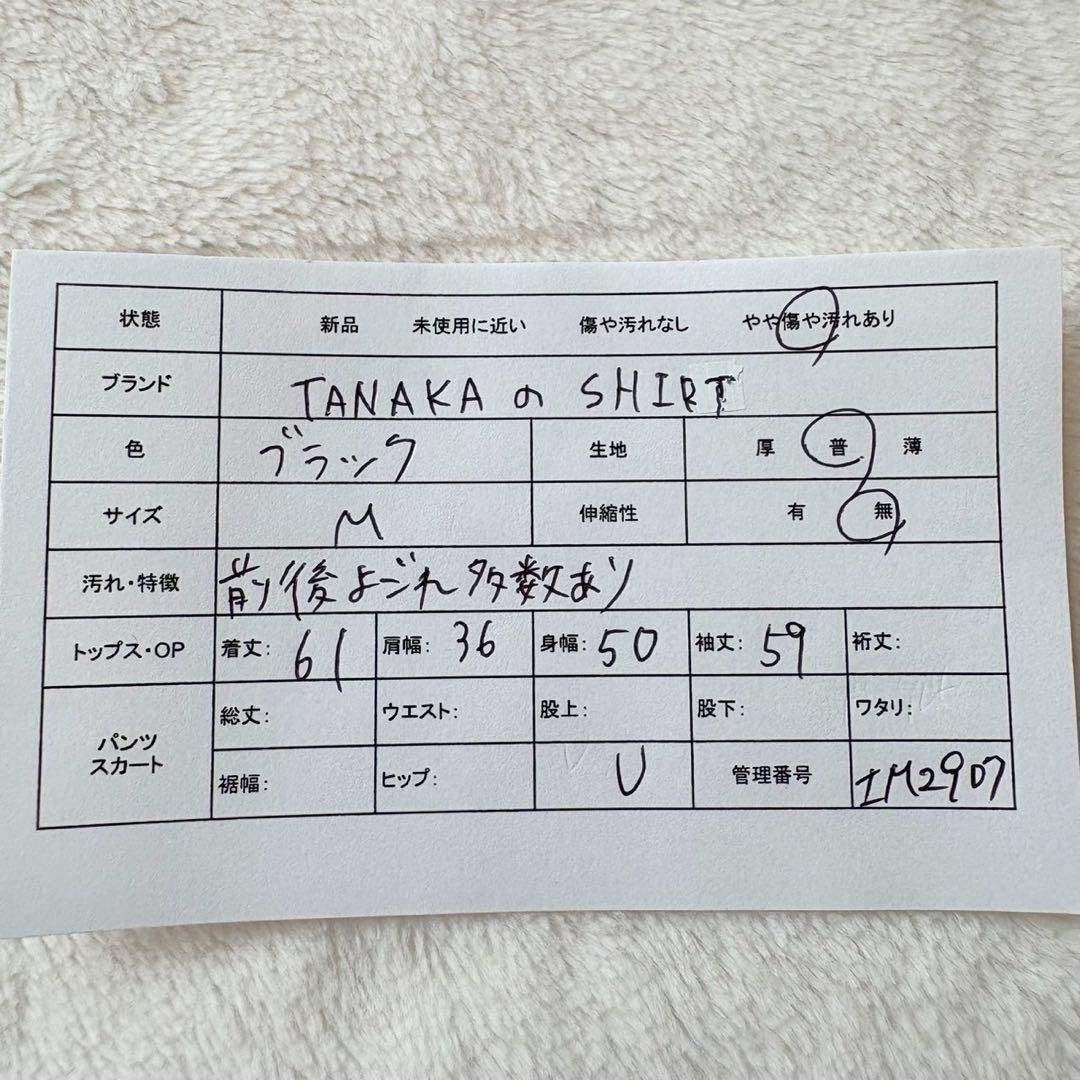 状態 新品 未使用に近い 傷や汚れなし やや傷や汚れあり
ブランド TANAKA の SHIRT
色 ブラック 生地 厚 普 薄
サイズ M 伸縮性 有 無
汚れ・特徴 前後よごれ多数あり
トップス・OP 着丈: 61 肩幅: 36 身幅: 50 袖丈: 59 裄丈:
パンツ
スカート
総丈: ウエスト: 股上: 股下: ワタリ:
裾幅: ヒップ: U 管理番号 IM2907